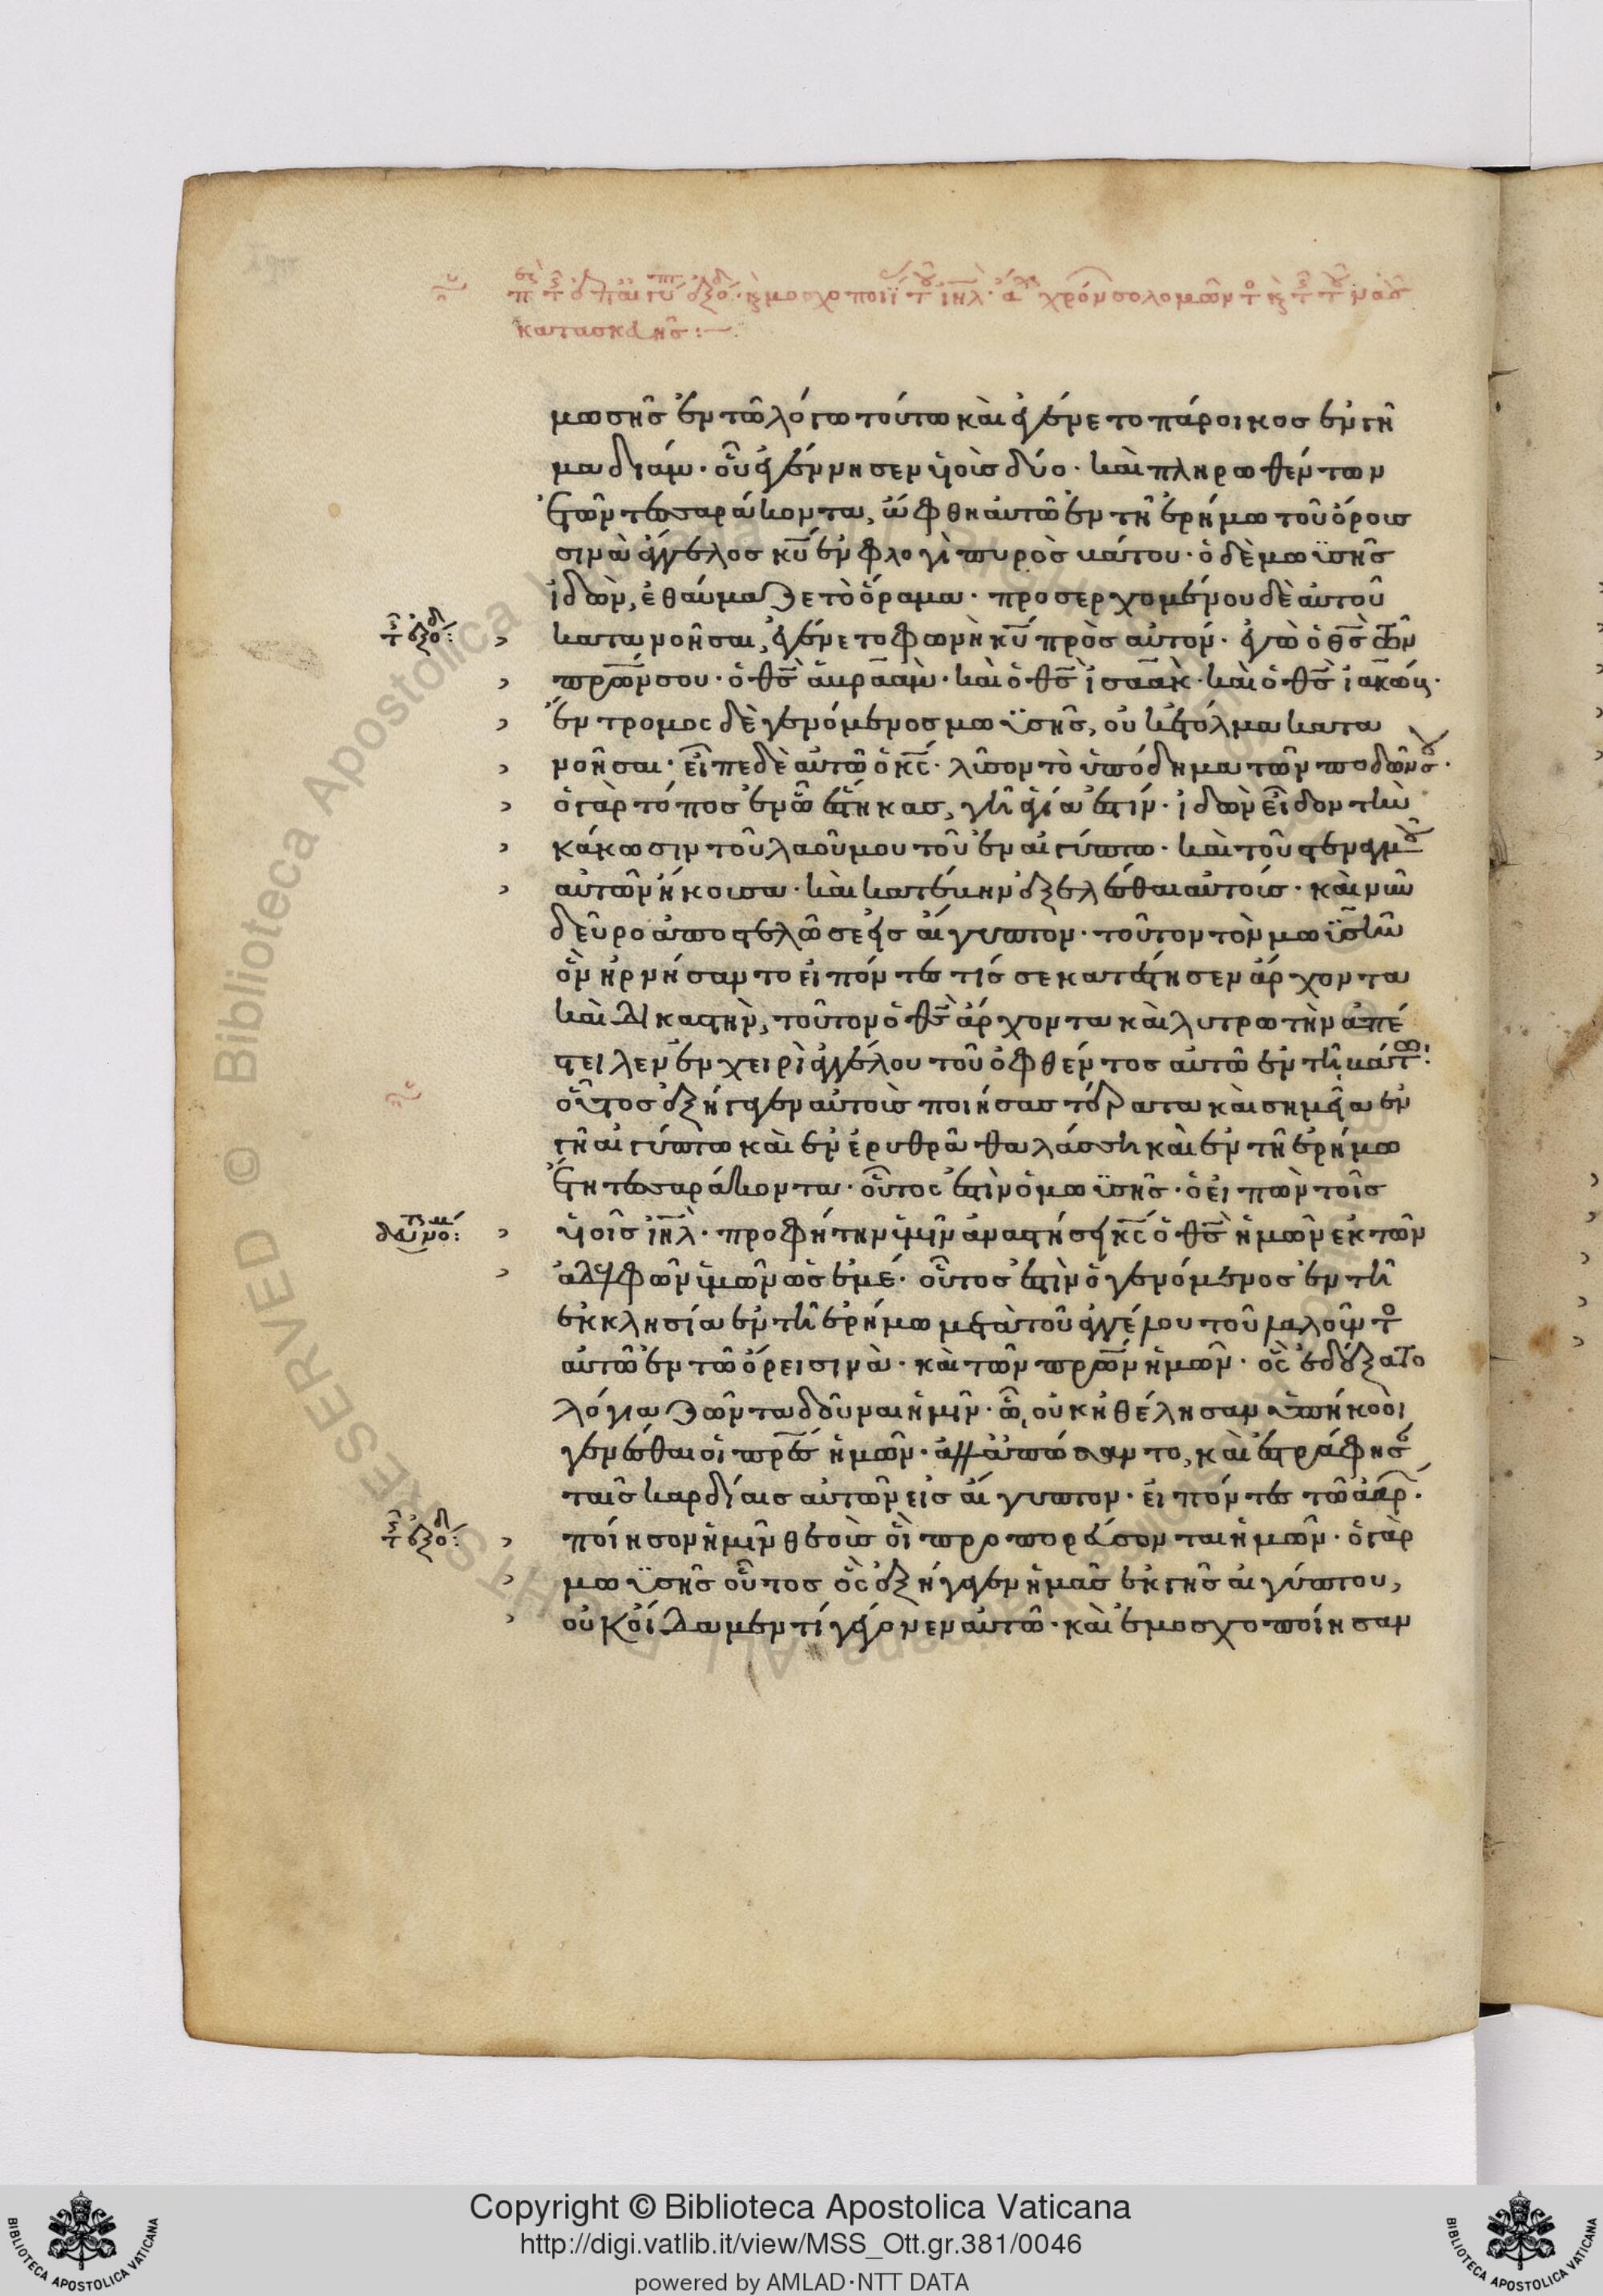 μωσῆς ἐν τῶ λόγω τούτω καὶ ἐγένετο πάροικος ἐν γῆ
μαδιάμ· οὗ ἐγέννησεν υἱοὺς δύο· καὶ πληρωθέντων
ἐτῶν τεσσαράκοντα, ὤφθη αὐτῶ ἐν τῆ ἐρήμω τοῦ ὄρους
σινὰ ἄγγελος κ̅υ̅ ἐν φλογὶ πυρὸς βάτου· ὁ δὲ μωϋσῆς
ἰδὼν, ἐθαύμαζε τὸ ὅραμα· προσερχομένου δὲ αὐτοῦ
τῆς ἐξόδ:
κατανοῆσαι, ἐγένετο φωνὴ κ̅υ̅ πρὸς αὐτόν· ἐγὼ ὁ θ̅ς̅ τῶν
π̅ρ̅ω̅ν σου· ὁ θ̅ς̅ ἀβραὰμ· καὶ ὁ θ̅ς̅ ἰσαὰκ· καὶ ὁ θ̅ς̅ ἰακώβ·
ἔντρομος δὲ γενόμενος μωϋσῆς, οὐκ ἐτόλμα κατα
νοῆσαι· εἶπε δὲ αὐτῶ ὁ κ̅ς̅· λῦσον τὸ ὑπόδημα τῶν ποδῶν σου·
ὁ γὰρ τόπος ἐν ὧ ἕστηκας, γῆ ἁγία ἐστίν· ἰδὼν εἶδον τὴν
κάκωσιν τοῦ λαοῦ μου τοῦ ἐν αἰγύπτω· καὶ τοῦ στεναγμοῦ
αὐτῶν ἤκουσα· καὶ κατέβην ἐξελέσθαι αὐτούς· καὶ νῦν
δεῦρο ἀποστελῶ σε εἰς αἴγυπτον· τοῦτον τὸν μωϋσῆν
ὃν ἠρνήσαντο εἰπόντες τίς σε κατέστησεν ἄρχοντα
καὶ δικαστὴν, τοῦτον ὁ θ̅ς̅ ἄρχοντα καὶ λυτρωτὴν ἀπέ
στειλεν ἐν χειρὶ ἀγγέλου τοῦ ὀφθέντος αὐτῶ ἐν τῆ βάτω·
οὗτος ἐξήγαγεν αὐτοὺς ποιήσας τέρατα καὶ σημεῖα ἐν
γῆ αἰγύπτω καὶ ἐν ἐρυθρᾶ θαλάσση καὶ ἐν τῆ ἐρήμω
ἔτη τεσσαράκοντα· οὗτος ἐστὶν ὁ μωϋσῆς· ὁ εἰπὼν τοῖς
υἱοῖς ι̅η̅λ̅· προφήτην ὑμῖν ἀναστήσει κ̅ς̅ ὁ θ̅ς̅ ἡμῶν ἐκ τῶν
ἀδελφῶν ὑμῶν ὡς ἐμέ· οὗτος ἐστὶν ὁ γενόμενος ἐν τῆ
ἐκκλησία ἐν τῆ ἐρήμω μετὰ τοῦ ἀγγέλου τοῦ λαλοῦντος
αὐτῶ ἐν τῶ ὄρει σινὰ· καὶ τῶν π̅ρ̅ω̅ν ἡμῶν· ὃς ἐδέξατο
λόγια ζῶντα δοῦναι ἡμῖν· ὧ οὐκ ἠθέλησαν ὑπήκοοι
γενέσθαι οἱ π̅ρ̅ε̅ς̅ ἡμῶν· ἀλλ' ἀπώσαντο, καὶ ἐστράφησαν
ταῖς καρδίαις αὐτῶν εἰς αἴγυπτον· εἰπόντες τῶ ἀαρών·
τῆς ἐξόδ:
ποίησον ἡμῖν θεοὺς οἳ προπορεύσονται ἡμῶν· ὁ γὰρ
μωϋσῆς οὗτος ὃς ἐξήγαγεν ἡμᾶς ἐκ γῆς αἰγύπτου,
οὐκ οἴδαμεν τί γέγονεν αὐτῶ· καὶ ἐμοσχοποίησαν
Copyright © Biblioteca Apostolica Vaticana
http://digi.vatlib.it/view/MSS_Ott.gr.381/0046
powered by AMLAD·NTT DATA